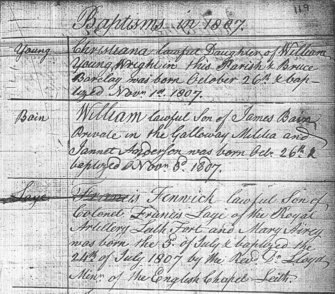 119
Baptisms in 1807.
Young Christiana lawful Daughter of William
Young Wright in this Parish & Bruce
Barclay was born October 26th & bap-
tized Novr. 1st. 1807.
Bain William lawful Son of James Bain
Private in the Galloway Militia and
Jannet Anderson was born Octr. 26th &
baptized Novr. 8th. 1807.
Laye Francis Fenwick lawful Son of
Colonel Francis Laye of the Royal
Artillery Leith Fort and Mary Airey
was born the 5th of July & baptized the
24th of July 1807 by the Revd. Dr. Lloyd
Minr. of the English Chapel Leith.